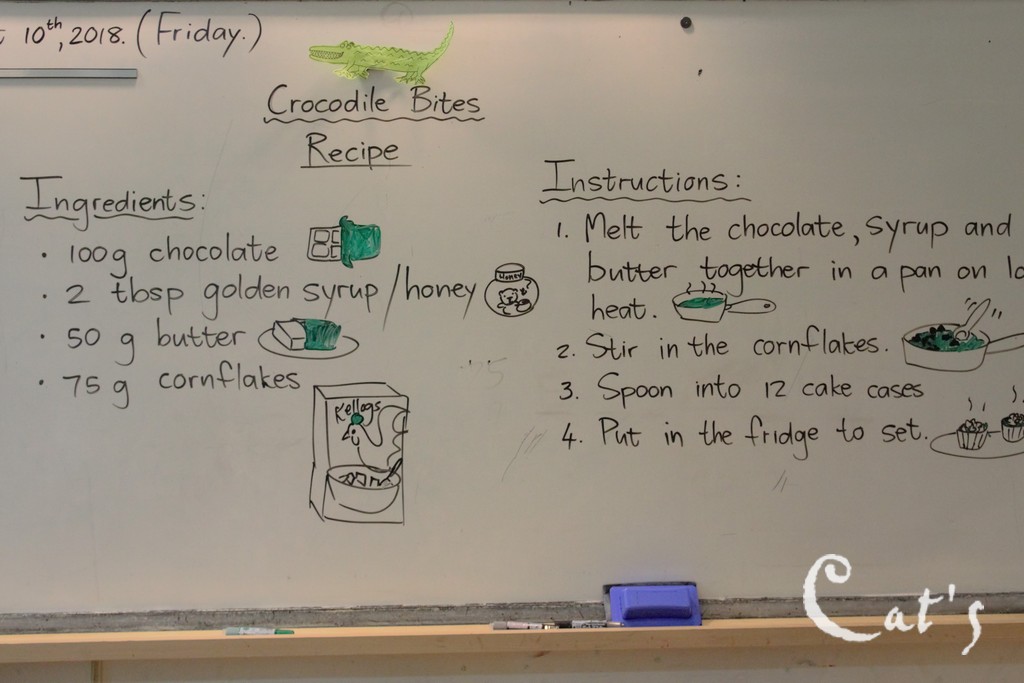 10th, 2018. (Friday.)
Crocodile Bites
Recipe
Ingredients:
· 100g chocolate
· 2 tbsp golden syrup / honey
Honey
· 50 g butter
· 75 g cornflakes
Kellogs
Instructions:
1. Melt the chocolate, syrup and
butter together in a pan on
heat.
2. Stir in the cornflakes.
3. Spoon into 12 cake cases
4. Put in the fridge to set.
Cat's